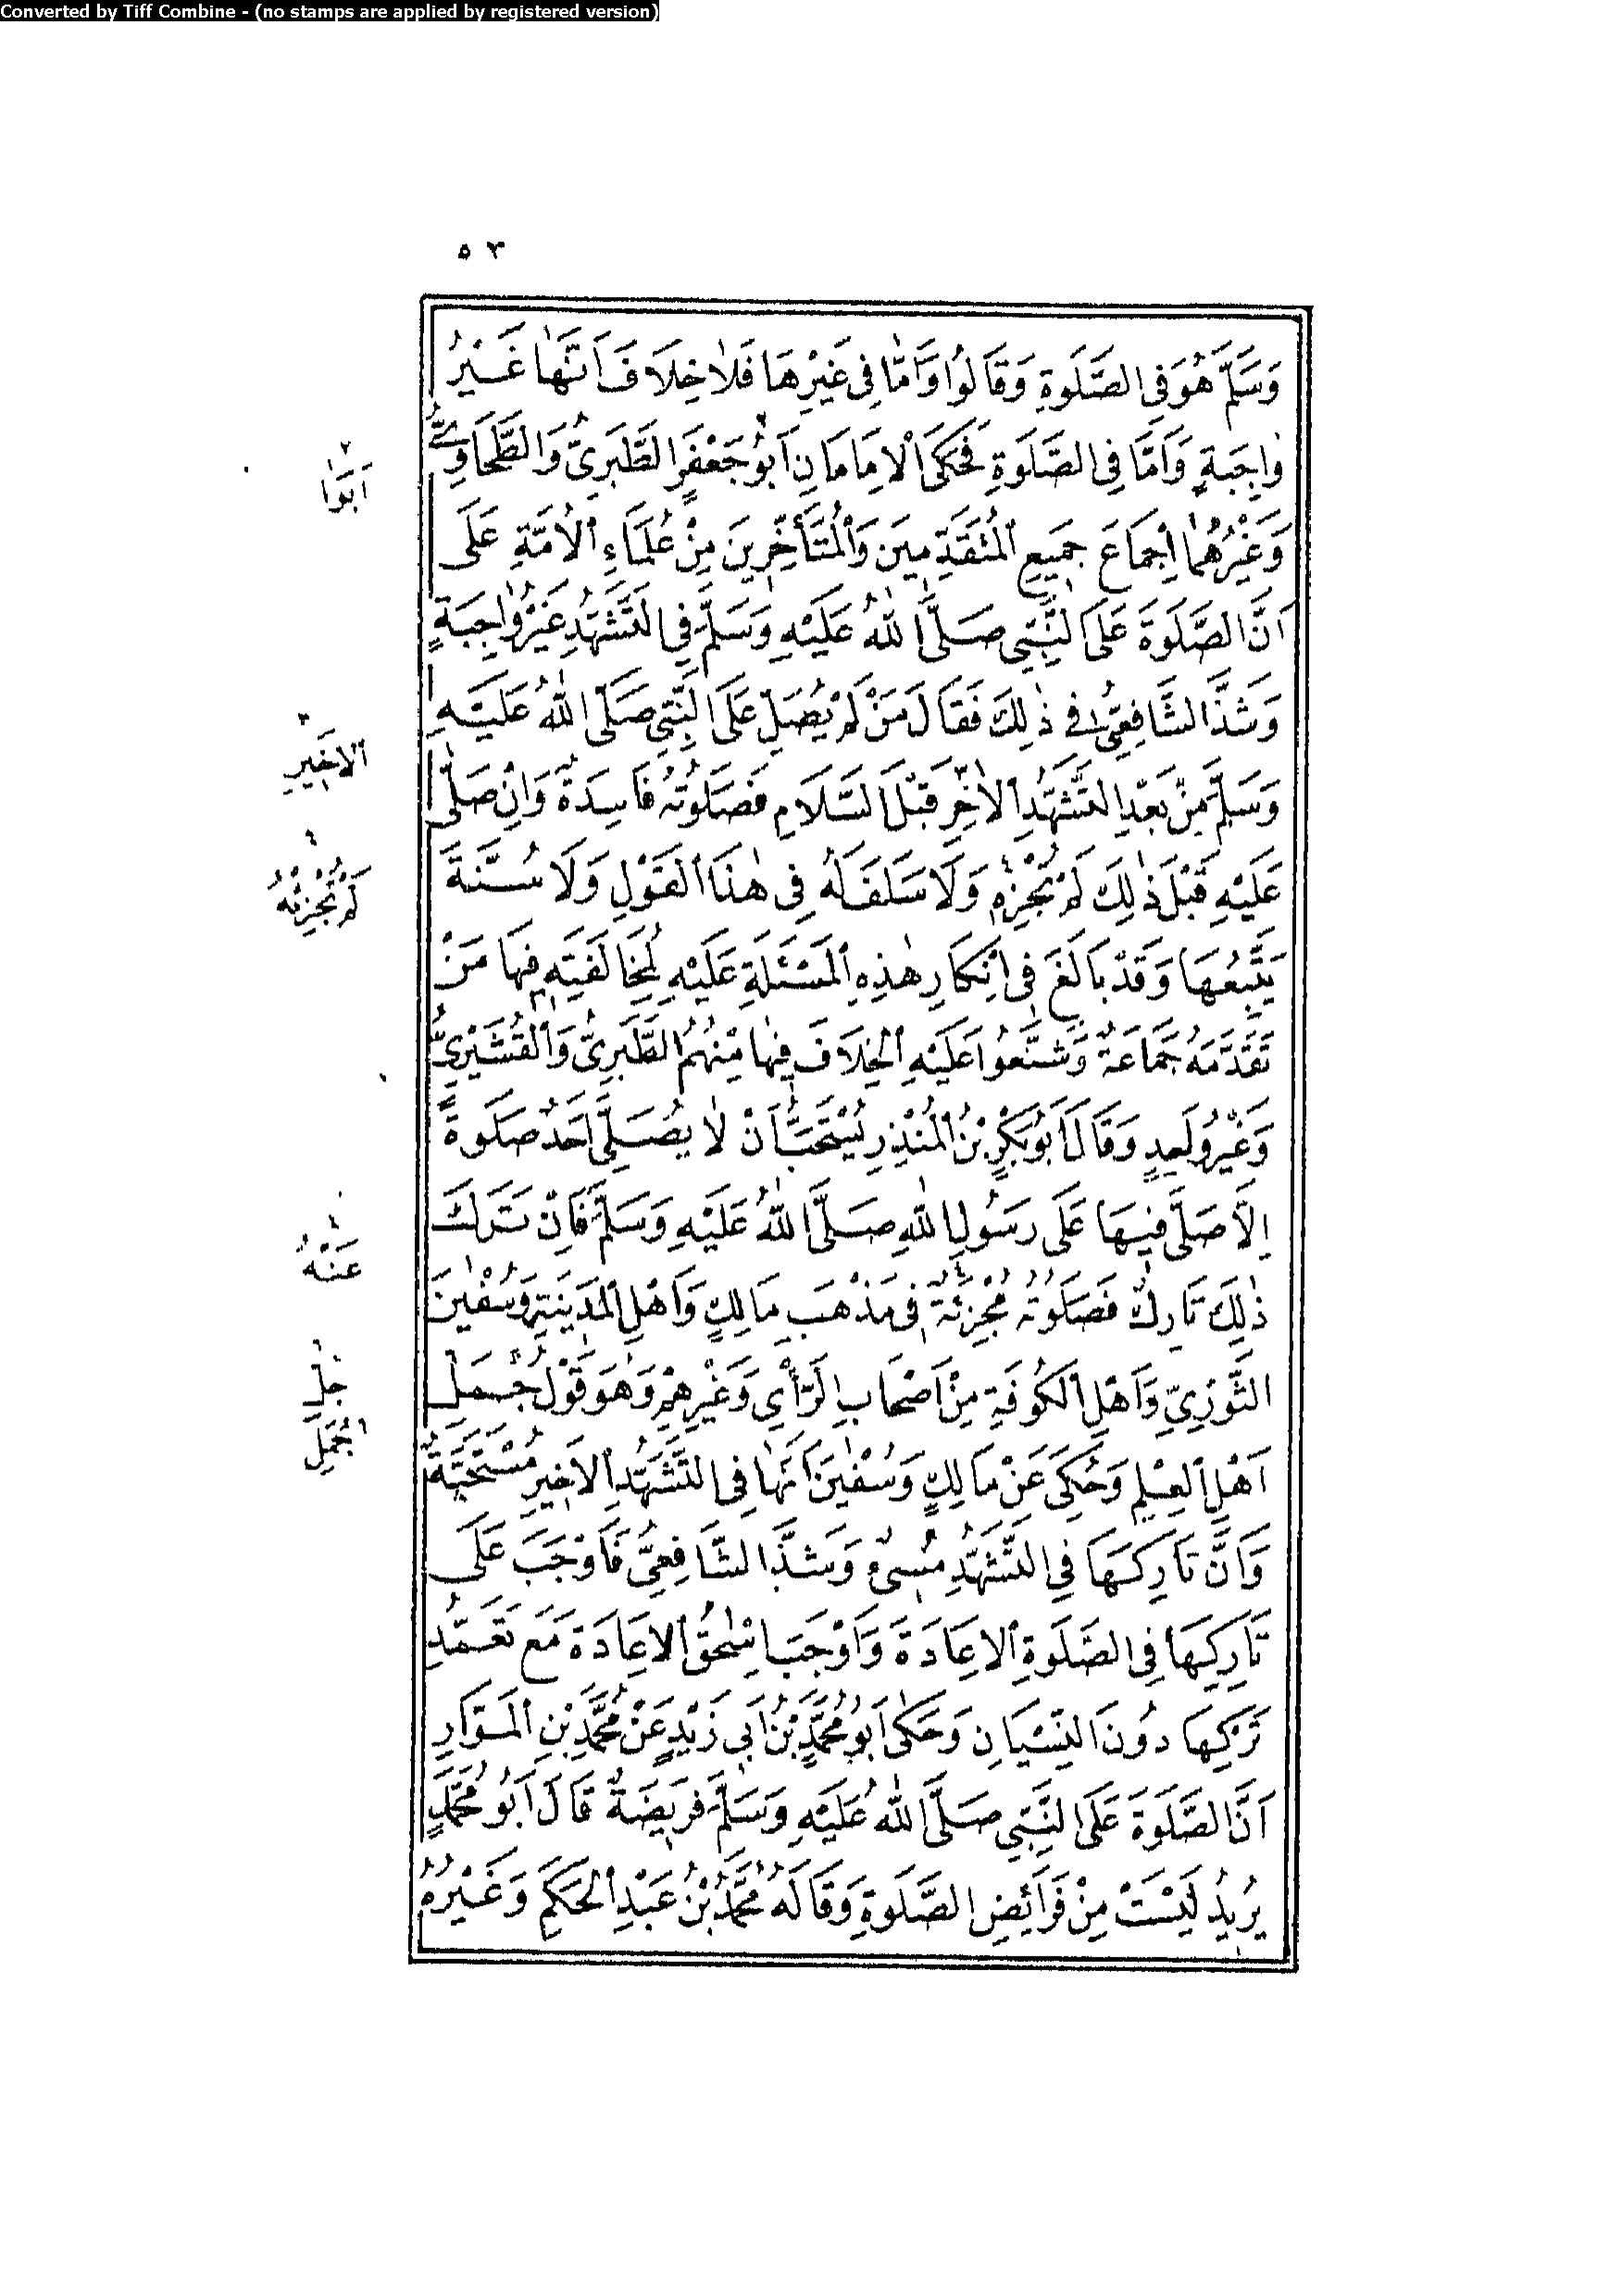 Converted by Tiff Combine - (no stamps are applied by registered version)
٥٣
وَسَلَّمَ هُوَ فِى الصَّلٰوةِ وَقَالُوا وَاَمَّا فِى غَيْرِهَا فَلَا خِلَافَ اَنَّهَا غَيْرُ
وَاجِبَةٍ وَاَمَّا فِى الصَّلَوةِ فَحَكَى الْاِمَامَانِ اَبُو جَعْفَرٍ الطَّبَرِىُّ وَالطَّحَاوِىُّ
وَغَيْرُهُمَا اِجْمَاعَ جَمِيعِ الْمُتَقَدِّمِينَ وَالْمُتَأَخِّرِينَ مِنْ عُلَمَاءِ الْاُمَّةِ عَلَى
اَنَّ الصَّلَوةَ عَلَى النَّبِىِّ صَلَّى اللّٰهُ عَلَيْهِ وَسَلَّمَ فِى التَّشَهُّدِ غَيْرُ وَاجِبَةٍ
وَشَذَّ الشَّافِعِىُّ فِى ذٰلِكَ فَقَالَ مَنْ لَمْ يُصَلِّ عَلَى النَّبِىِّ صَلَّى اللّٰهُ عَلَيْهِ
وَسَلَّمَ مِنْ بَعْدِ التَّشَهُّدِ الْاٰخِرِ قَبْلَ السَّلَامِ فَصَلَوتُهُ فَاسِدَةٌ وَاِنْ صَلَّى
عَلَيْهِ قَبْلَ ذٰلِكَ لَمْ تُجْزِهِ وَلَا سَلَفَ لَهُ فِى هٰذَا الْقَوْلِ وَلَا سُنَّةَ
يَتَّبِعُهَا وَقَدْ بَالَغَ فِى اِنْكَارِ هٰذِهِ الْمَسْئَلَةِ عَلَيْهِ لِمُخَالَفَتِهِ فِيهَا مَنْ
تَقَدَّمَهُ جَمَاعَةٌ وَشَنَّعُوا عَلَيْهِ الْخِلَافَ فِيهَا مِنْهُمُ الطَّبَرِىُّ وَالْقُشَيْرِىُّ
وَغَيْرُ وَاحِدٍ وَقَالَ اَبُو بَكْرِ بْنُ الْمُنْذِرِ يُسْتَحَبُّ اَنْ لَا يُصَلِّىَ اَحَدٌ صَلَوةً
اِلَّا صَلَّى فِيهَا عَلَى رَسُولِ اللّٰهِ صَلَّى اللّٰهُ عَلَيْهِ وَسَلَّمَ فَاِنْ تَرَكَ
ذٰلِكَ تَارِكٌ فَصَلَوتُهُ مُجْزِئَةٌ فِى مَذْهَبِ مَالِكٍ وَاَهْلِ الْمَدِينَةِ وَسُفْيٰنَ
الثَّوْرِىِّ وَاَهْلِ الْكُوفَةِ مِنْ اَصْحَابِ الرَّأْىِ وَغَيْرِهِمْ وَهُوَ قَوْلُ جُمَلِ
اَهْلِ الْعِلْمِ وَحُكِىَ عَنْ مَالِكٍ وَسُفْيٰنَ اَنَّهَا فِى التَّشَهُّدِ الْاَخِيرِ مُسْتَحَبَّةٌ
وَاَنَّ تَارِكَهَا فِى التَّشَهُّدِ مُسِىْءٌ وَشَذَّ الشَّافِعِىُّ فَاَوْجَبَ عَلَى
تَارِكِهَا فِى الصَّلَوةِ الْاِعَادَةَ وَاَوْجَبَ اِسْحٰقُ الْاِعَادَةَ مَعَ تَعَمُّدِ
تَرْكِهَا دُونَ النِّسْيَانِ وَحَكٰى اَبُو مُحَمَّدِ بْنُ اَبِى زَيْدٍ عَنْ مُحَمَّدِ بْنِ الْمَوَّازِ
اَنَّ الصَّلَوةَ عَلَى النَّبِىِّ صَلَّى اللّٰهُ عَلَيْهِ وَسَلَّمَ فَرِيضَةٌ قَالَ اَبُو مُحَمَّدٍ
يُرِيدُ لَيْسَتْ مِنْ فَرَائِضِ الصَّلَوةِ وَقَالَهُ مُحَمَّدُ بْنُ عَبْدِ الْحَكَمِ وَغَيْرُهُ
اَبَوَا
الْاَخِيرِ
لَمْ تُجْزِئْهُ
عَنْهُ
جُلِّ
الْجُمَلِ